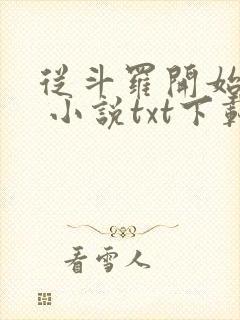 從斗羅開始
小說txt下載
看雪人